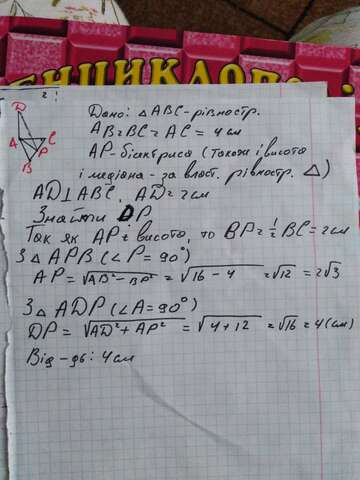 ЕНЦИКЛОП
2!
D
A
C
P
B
Дано: △ABC - рівностр.
AB=BC=AC = 4 см
AP - бісектриса (також і висота
і медіана - за власт. рівностр. △)
AD⊥ABC, AD=2см
Знайти DP
Так як AP і висота, то BP=½BC=2см
З △APB (∠P=90°)
AP = √AB²-BP² = √16-4 = √12 = 2√3
З △ADP (∠A=90°)
DP = √AD²+AP² = √4+12 = √16 = 4(см)
Від-дь: 4см